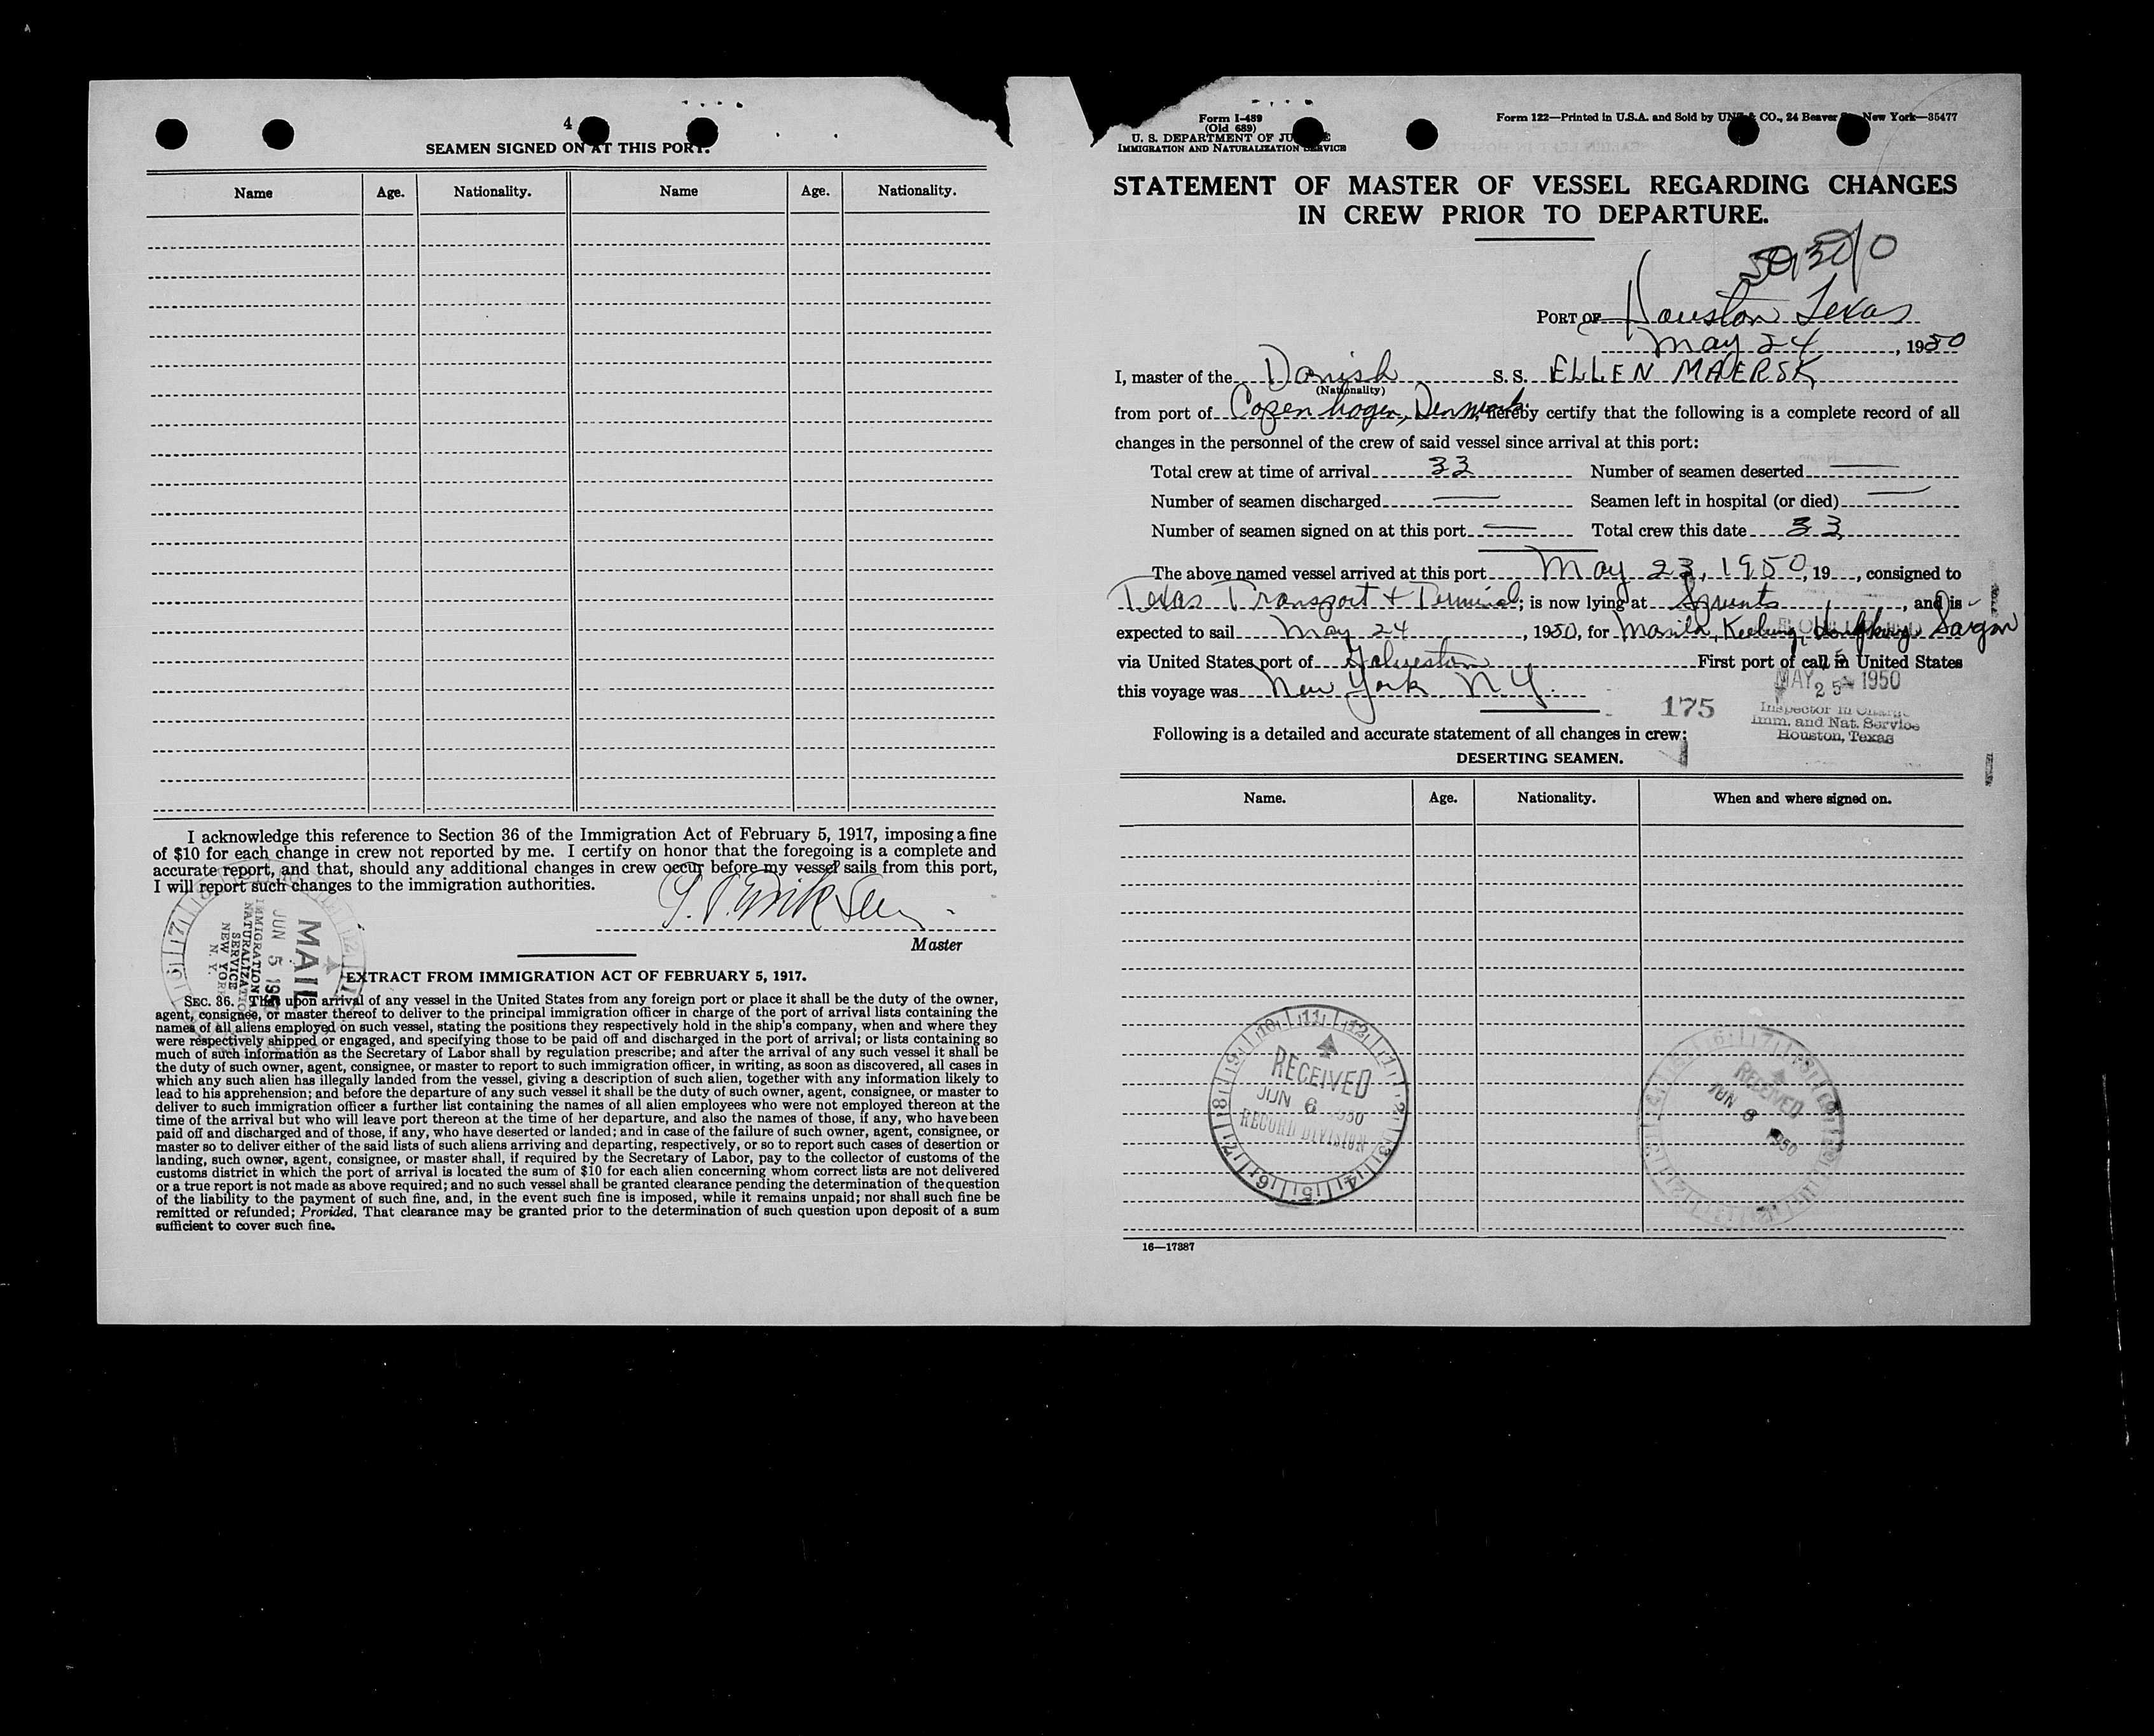 4
SEAMEN SIGNED ON AT THIS PORT.
Name Age. Nationality. Name Age. Nationality.
I acknowledge this reference to Section 36 of the Immigration Act of February 5, 1917, imposing a fine
of $10 for each change in crew not reported by me. I certify on honor that the foregoing is a complete and
accurate report, and that, should any additional changes in crew occur before my vessel sails from this port,
I will report such changes to the immigration authorities.
Master
MAIL
JUN 5
IMMIGRATION
NATURALIZATION
SERVICE
NEW YORK
N. Y.
EXTRACT FROM IMMIGRATION ACT OF FEBRUARY 5, 1917.
SEC. 36. That upon arrival of any vessel in the United States from any foreign port or place it shall be the duty of the owner,
agent, consignee, or master thereof to deliver to the principal immigration officer in charge of the port of arrival lists containing the
names of all aliens employed on such vessel, stating the positions they respectively hold in the ship's company, when and where they
were respectively shipped or engaged, and specifying those to be paid off and discharged in the port of arrival; or lists containing so
much of such information as the Secretary of Labor shall by regulation prescribe; and after the arrival of any such vessel it shall be
the duty of such owner, agent, consignee, or master to report to such immigration officer, in writing, as soon as discovered, all cases in
which any such alien has illegally landed from the vessel, giving a description of such alien, together with any information likely to
lead to his apprehension; and before the departure of any such vessel it shall be the duty of such owner, agent, consignee, or master to
deliver to such immigration officer a further list containing the names of all alien employees who were not employed thereon at the
time of the arrival but who will leave port thereon at the time of her departure, and also the names of those, if any, who have been
paid off and discharged and of those, if any, who have deserted or landed; and in case of the failure of such owner, agent, consignee, or
master so to deliver either of the said lists of such aliens arriving and departing, respectively, or so to report such cases of desertion or
landing, such owner, agent, consignee, or master shall, if required by the Secretary of Labor, pay to the collector of customs of the
customs district in which the port of arrival is located the sum of $10 for each alien concerning whom correct lists are not delivered
or a true report is not made as above required; and no such vessel shall be granted clearance pending the determination of the question
of the liability to the payment of such fine, and, in the event such fine is imposed, while it remains unpaid; nor shall such fine be
remitted or refunded; Provided, That clearance may be granted prior to the determination of such question upon deposit of a sum
sufficient to cover such fine.
Form I-489
(Old 689)
U. S. DEPARTMENT OF JUSTICE
IMMIGRATION AND NATURALIZATION SERVICE
Form 122—Printed in U.S.A. and Sold by UNZ & CO., 24 Beaver St., New York—35477
STATEMENT OF MASTER OF VESSEL REGARDING CHANGES
IN CREW PRIOR TO DEPARTURE.
PORT OF Houston Texas
May 24, 1950
I, master of the Danish S. S. ELLEN MAERSK
(Nationality)
from port of Copenhagen, Denmark, hereby certify that the following is a complete record of all
changes in the personnel of the crew of said vessel since arrival at this port:
Total crew at time of arrival 33 Number of seamen deserted —
Number of seamen discharged — Seamen left in hospital (or died) —
Number of seamen signed on at this port — Total crew this date 33
The above named vessel arrived at this port May 23, 1950, 19 , consigned to
Texas Transport + Terminal; is now lying at Sprunts, and is
expected to sail May 24, 1950, for Manila, Keelung, Hongkong, Saigon
via United States port of Galveston First port of call in United States
this voyage was New York N Y.
175
MAY 25 1950
Inspector in Charge
Imm. and Nat. Service
Houston, Texas
Following is a detailed and accurate statement of all changes in crew:
DESERTING SEAMEN.
Name. Age. Nationality. When and where signed on.
RECEIVED
JUN 6 1950
RECORD DIVISION
RECEIVED
JUN 6 1950
16—17387